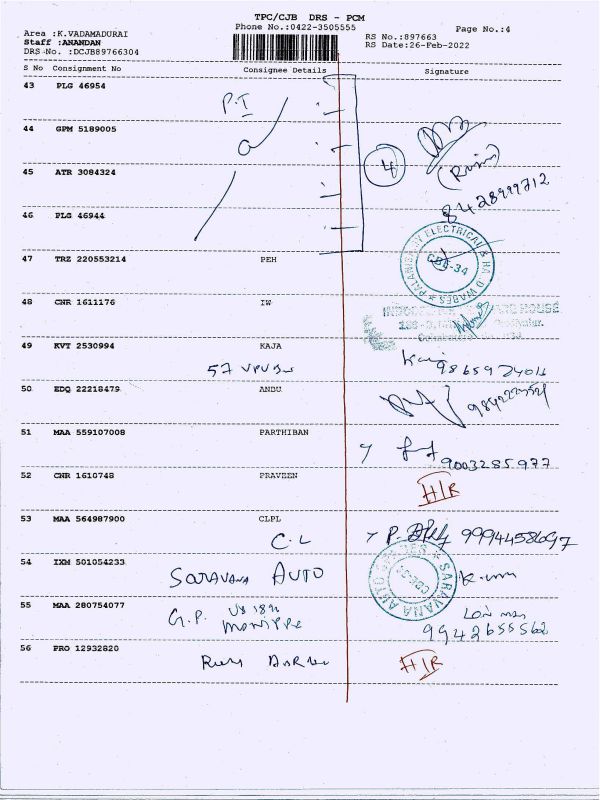 TPC/CJB DRS - PCM
Phone No.:0422-3505555
Page No.:4
Area :K.VADAMADURAI
Staff :ANANDAN
DRS No. :DCJB89766304
RS No.:897663
RS Date:26-Feb-2022
S No Consignment No Consignee Details Signature
43 PLG 46954
P.I
44 GPM 5189005
a
4
45 ATR 3084324
8428999712
46 PLG 46944
47 TRZ 220553214 PEH
PALANISAMY ELECTRICAL & HARDWARES
CBE-34
48 CNR 1611176 IW
49 KVT 2530994 KAJA
57 VPV
50 EDQ 22218479 ANBU
51 MAA 559107008 PARTHIBAN
9003285977
52 CNR 1610748 PRAVEEN
H/R
53 MAA 564987900 CLPL
C.L
9994458697
54 IXM 501054233
SARAVANA AUTO
SARAVANA AUTO
55 MAA 280754077
G.P.
9942655562
56 PRO 12932820
H/R